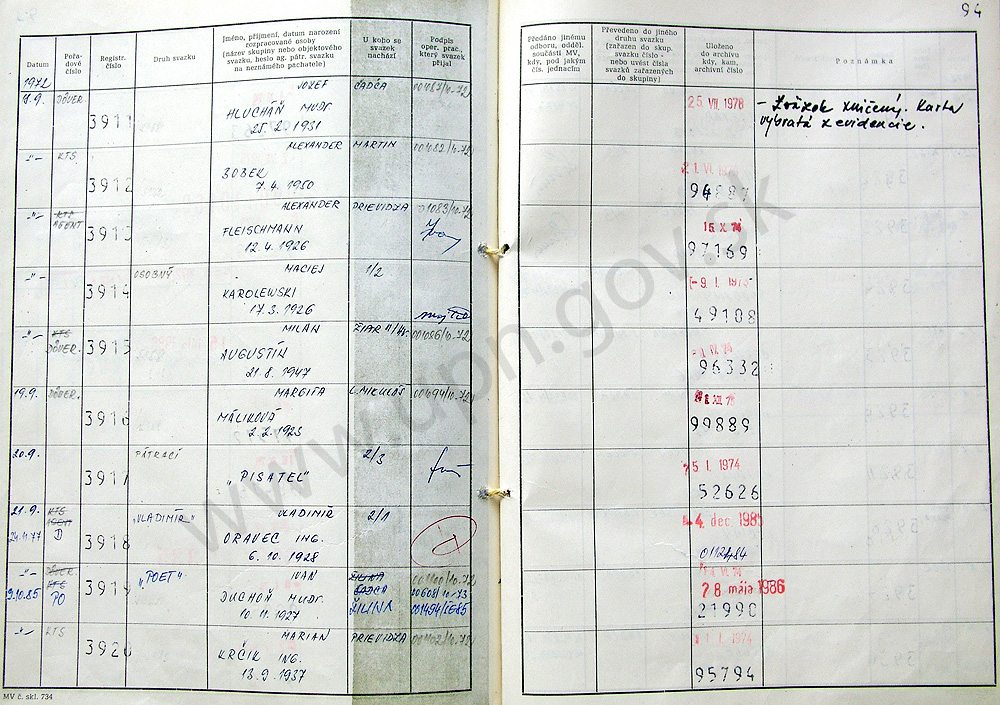 94
Datum
Pořadové číslo
Registr. číslo
Druh svazku
Jméno, příjmení, datum narození
rozpracované osoby
(název skupiny nebo objektového
svazku, heslo ag. pátr. svazku
na neznámého pachatele)
U koho se
svazek
nachází
Podpis
oper. prac.,
který svazek
přijal
Předáno jinému
odboru, odděl.
součásti MV,
kdy, pod jakým
čís. jednacím
Převedeno do jiného
druhu svazku
(zařazen do skup.
svazku číslo -
nebo uvést čísla
svazků zařazených
do skupiny)
Uloženo
do archivu
kdy, kam,
archivní číslo
Poznámka
1972
18.9. DÔVER. 3911 JOZEF ČADCA
HLUCHÁŇ MUDr
25. 2. 1931
25. VII. 1978
- Zväzok zničený. Karta
vybratá z evidencie.
-"- KTS 3912 ALEXANDER MARTIN 001082/10.72
BOBEK
7. 4. 1950
-"- KTS AGENT 3913 ALEXANDER PRIEVIDZA 001083/10.72
FLEISCHMANN
12. 4. 1926
15. X. 74
97169
-"- 3914 OSOBNÝ MACIEJ 1/2
KAROLEWSKI
17. 3. 1926
49108
-"- KTS DÔVER. 3915 MILAN ŽIAR n/Hr. 001086/10.72
AUGUSTÍN
21. 8. 1947
96332
19.9. DÔVER. 3916 MARGITA L. MIKULÁŠ
MÁLIKOVÁ
2. 2. 1923
99889
20.9. 3917 PÁTRACÍ 2/3
"PISATEĽ"
25. I. 1974
52626
21.9. KTS AGENT
24.11.77 D 3918 "VLADIMÍR" VLADIMÍR 2/1
ORAVEC ING.
6. 10. 1928
-4. dec 1985
-"- DÔVER. KTS
9.10.85 PO 3919 "POET" IVAN ŽILINA
DUCHOŇ MUDr. ČADCA
10. 11. 1927 ŽILINA
28 mája 1986
21990
-"- KTS 3920 MARIAN PRIEVIDZA
KRČIK ING.
13. 9. 1937
95794
MV č. skl. 734
www.upn.gov.sk